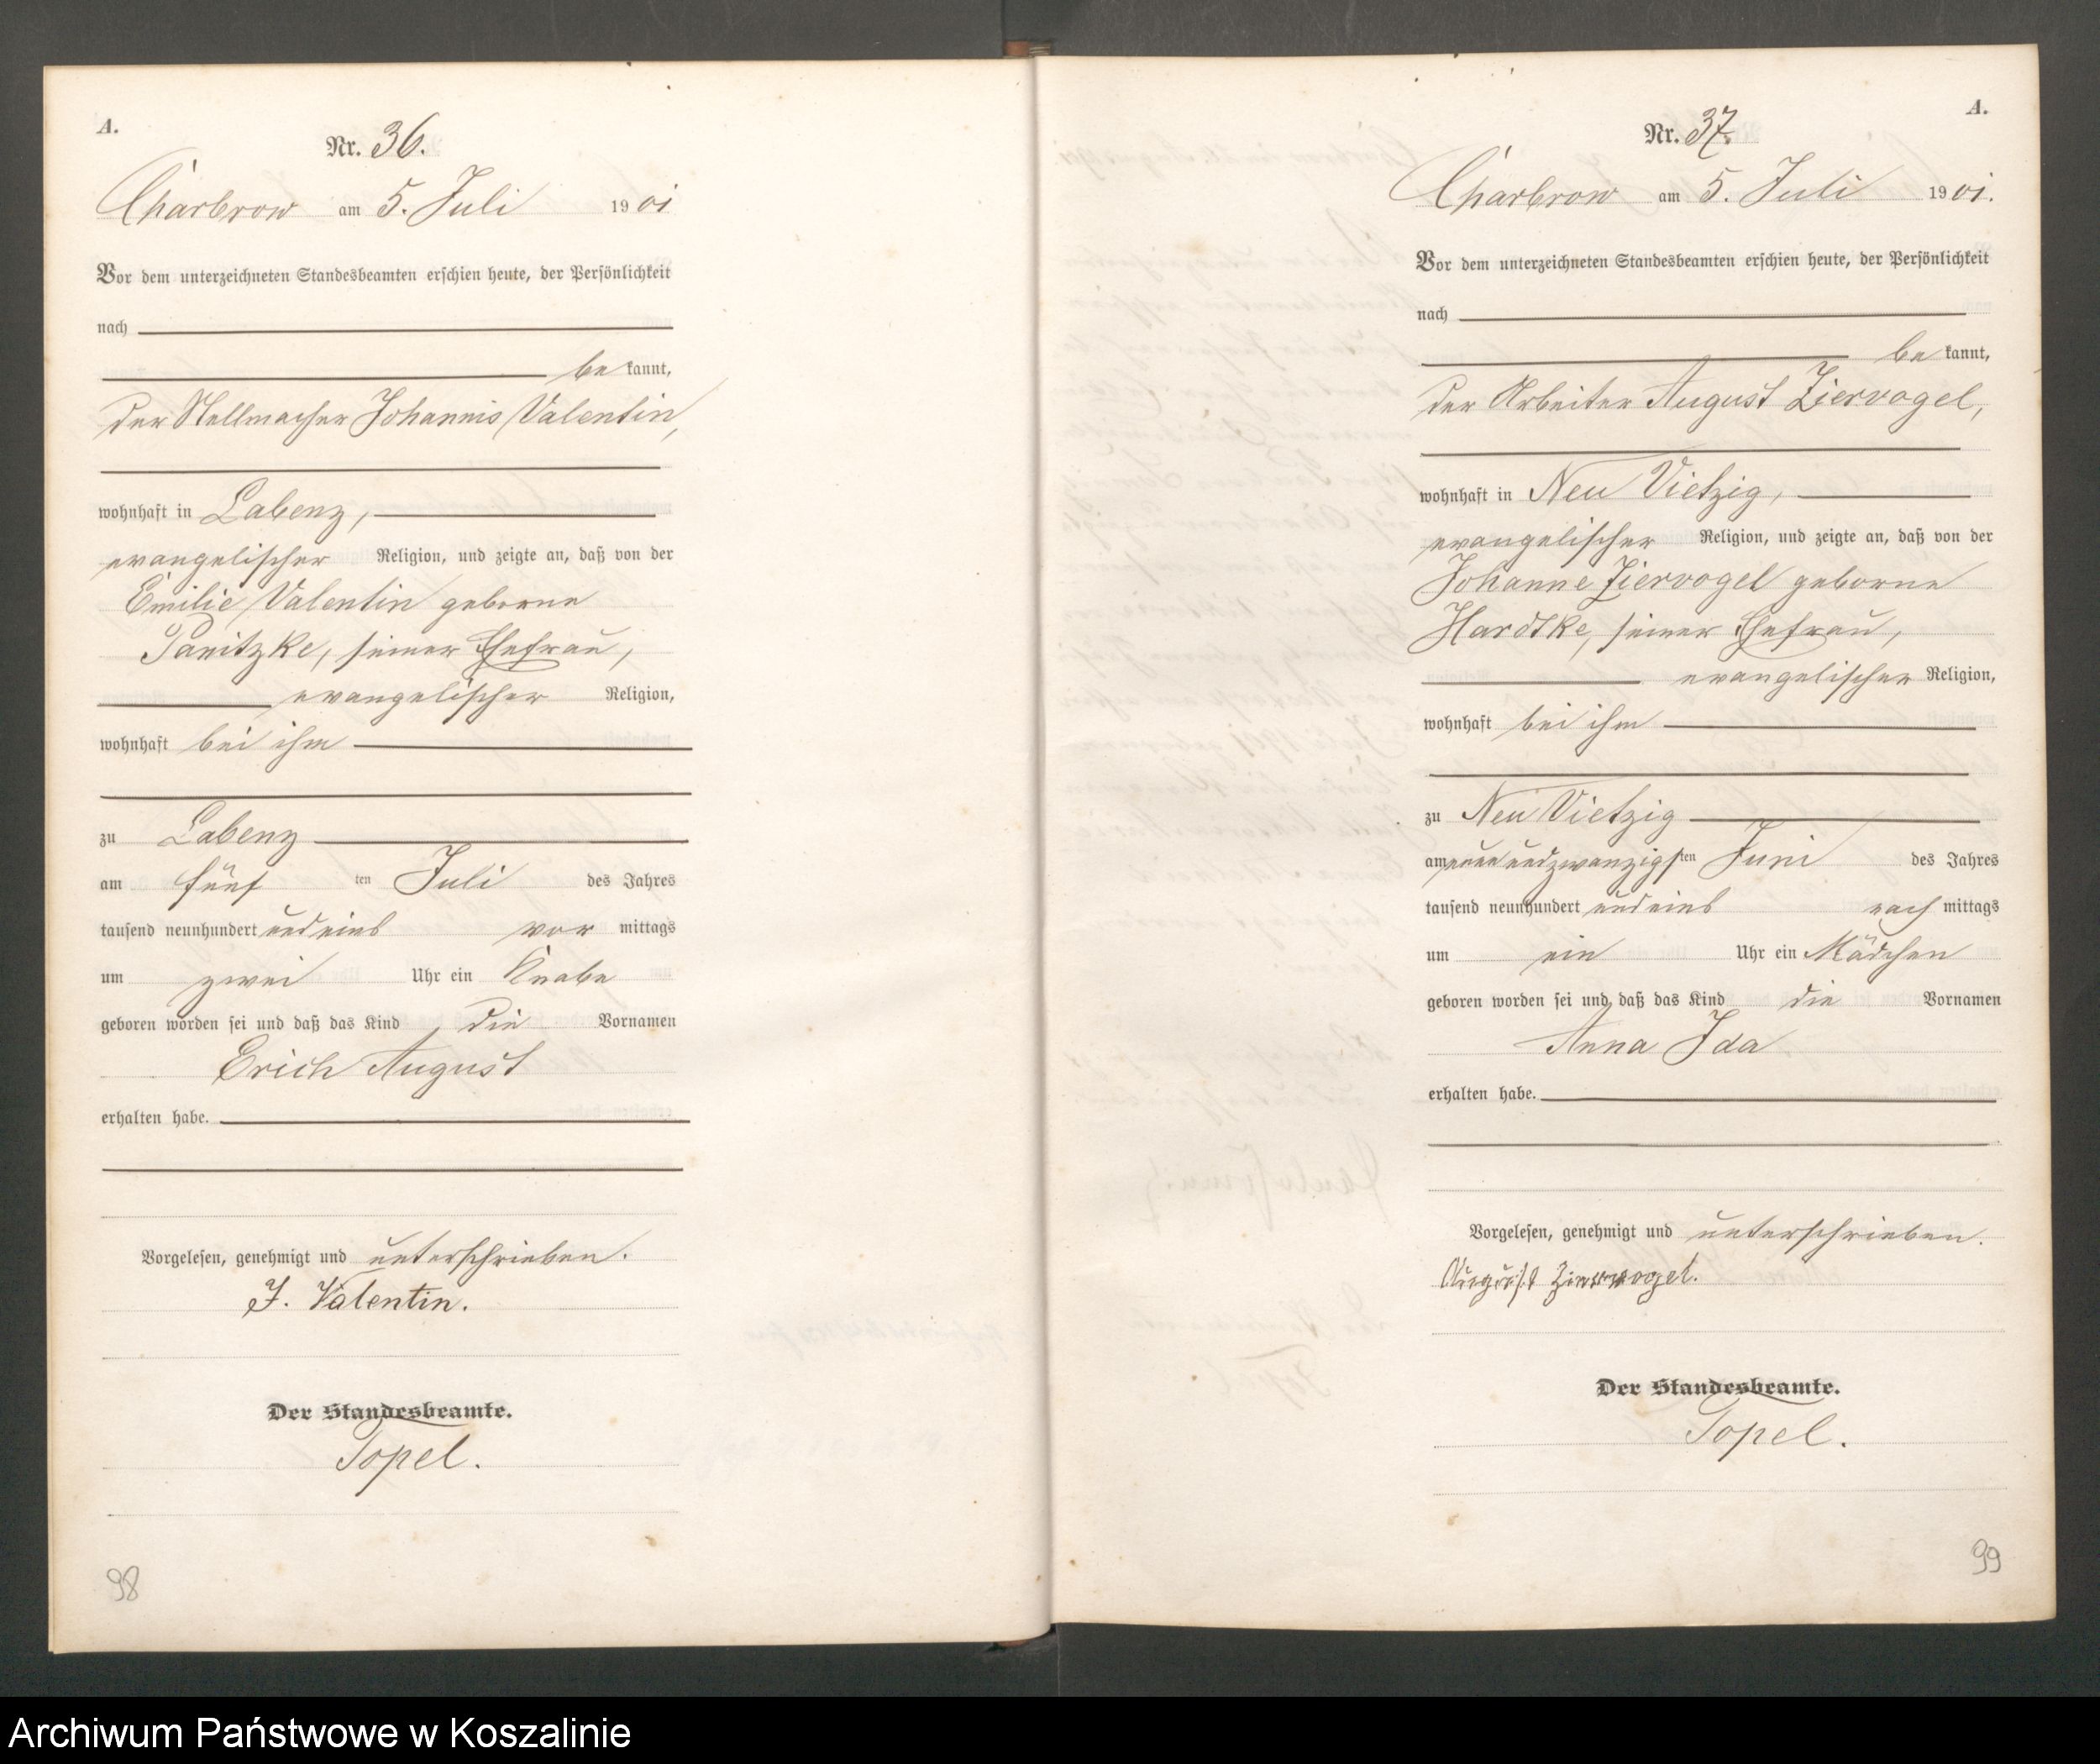 A.
Nr. 36.
Charbrow am 5. Juli 1901
Vor dem unterzeichneten Standesbeamten erschien heute, der Persönlichkeit
nach
be kannt,
der Stellmacher Johannis Valentin,
wohnhaft in Labenz,
evangelischer Religion, und zeigte an, daß von der
Emilie Valentin geborne
Panitzke, seiner Ehefrau,
evangelischer Religion,
wohnhaft bei ihm
zu Labenz
am fünf ten Juli des Jahres
tausend neunhundert und eins vor mittags
um zwei Uhr ein Knabe
geboren worden sei und daß das Kind die Vornamen
Erich August
erhalten habe.
Vorgelesen, genehmigt und unterschrieben.
J. Valentin.
Der Standesbeamte.
Topel.
98
A.
Nr. 37.
Charbrow am 5. Juli 1901.
Vor dem unterzeichneten Standesbeamten erschien heute, der Persönlichkeit
nach
be kannt,
der Arbeiter August Ziervogel,
wohnhaft in Neu Vietzig,
evangelischer Religion, und zeigte an, daß von der
Johanne Ziervogel geborne
Hardtke, seiner Ehefrau,
evangelischer Religion,
wohnhaft bei ihm
zu Neu Vietzig
am neunundzwanzigsten Juni des Jahres
tausend neunhundert und eins nach mittags
um ein Uhr ein Mädchen
geboren worden sei und daß das Kind die Vornamen
Anna Ida
erhalten habe.
Vorgelesen, genehmigt und unterschrieben.
August Ziervogel.
Der Standesbeamte.
Topel.
99
Archiwum Państwowe w Koszalinie